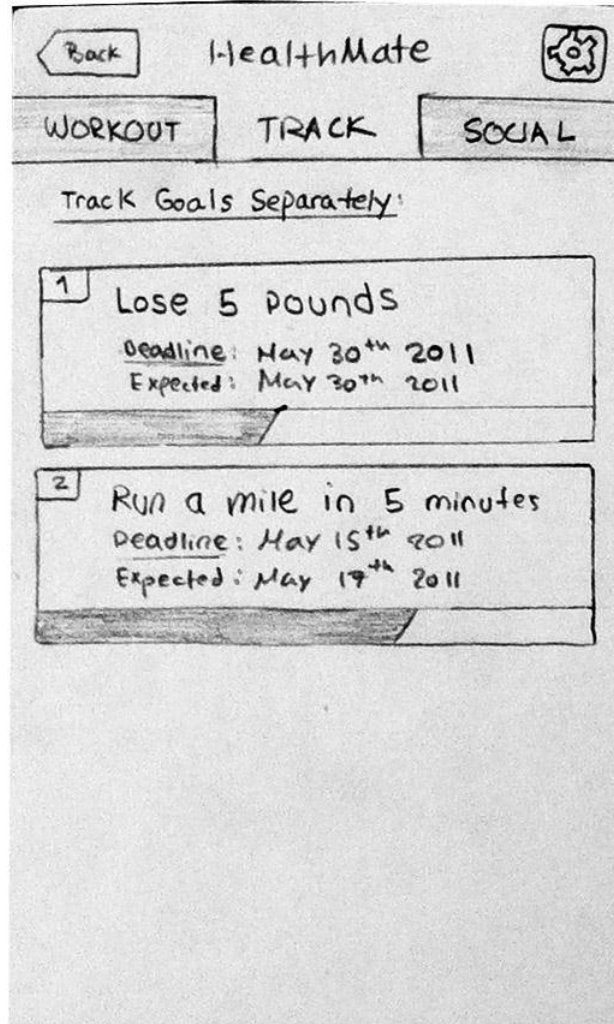 Back
HealthMate
WORKOUT
TRACK
SOCIAL
Track Goals Separately:
1
Lose 5 pounds
Deadline: May 30th 2011
Expected: May 30th 2011
2
Run a mile in 5 minutes
Deadline: May 15th 2011
Expected: May 17th 2011